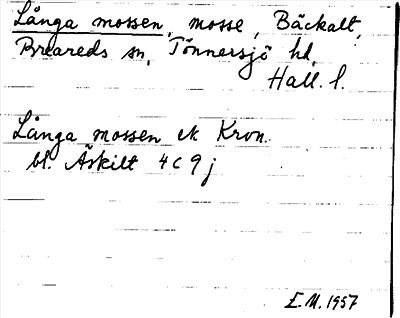 Långa mossen, mosse, Bäckalt,
Breareds sn, Tönnersjö hd,
Hall. l.
Långa mossen ek Kron.
bl. Äskilt 4C9j
E.M. 1957